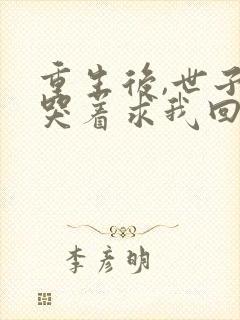 重生後,世子
哭着求我回
李彦明